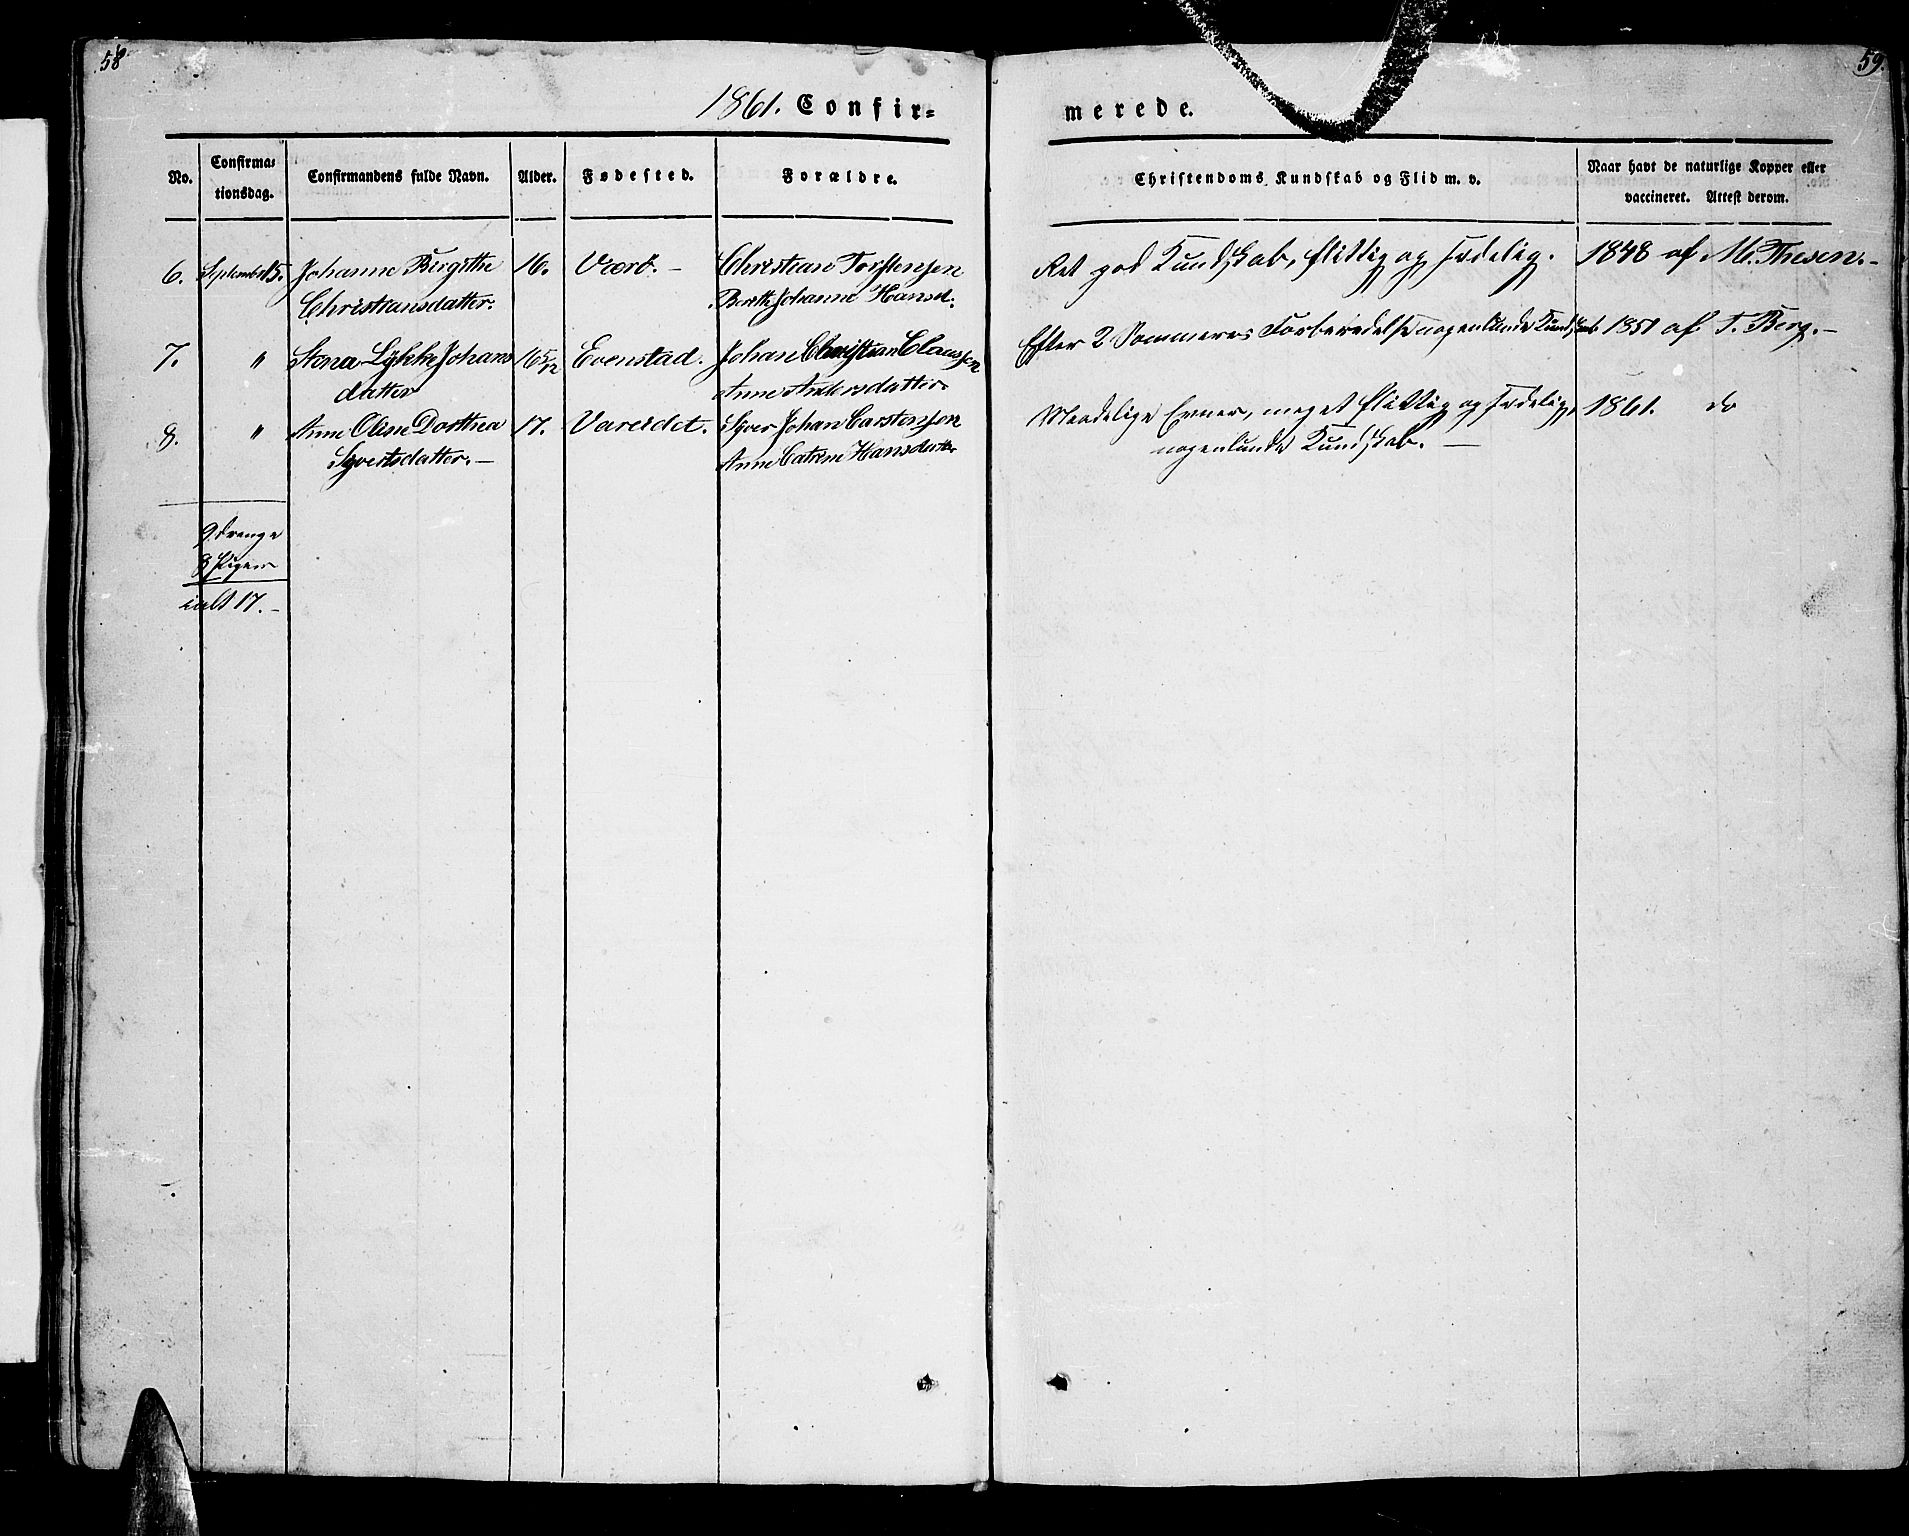 58
59.
1861. Confir-
merede.
No.
Confirma-
tionsdag.
Confirmandens fulde Navn.
Alder.
Fødested.
Forældre.
Christendoms Kundskab og Flid m. v.
Naar havt de naturlige Kopper eller
vaccineret. Attest derom.
6. September 15. Johanne Birgithe 16. Værö. – Christian Torstensen Ret god Kundskab, flittig og sædelig. 1848 af M. Thesen. –
Christiansdatter. Berith Johanne Hansd.
7. " Stona Lykke Johans 16 5/12 Evenstad. Johan Christian Claussen Efter 2 Sommeres Forberedelse nogenlunde Kundskab 1851 af T. Berg. –
datter Anne Andersdatter.
8. " Anne Oline Dorthea 17. Vareidet. Syver Johan Carstensen Maadelige Evner, meget flittig og sædelig, 1861. do
Syvertsdatter. – Anne Catrine Hansdatter nogenlunde Kundskab. –
9 Drenge
8 Piger
ialt 17. –